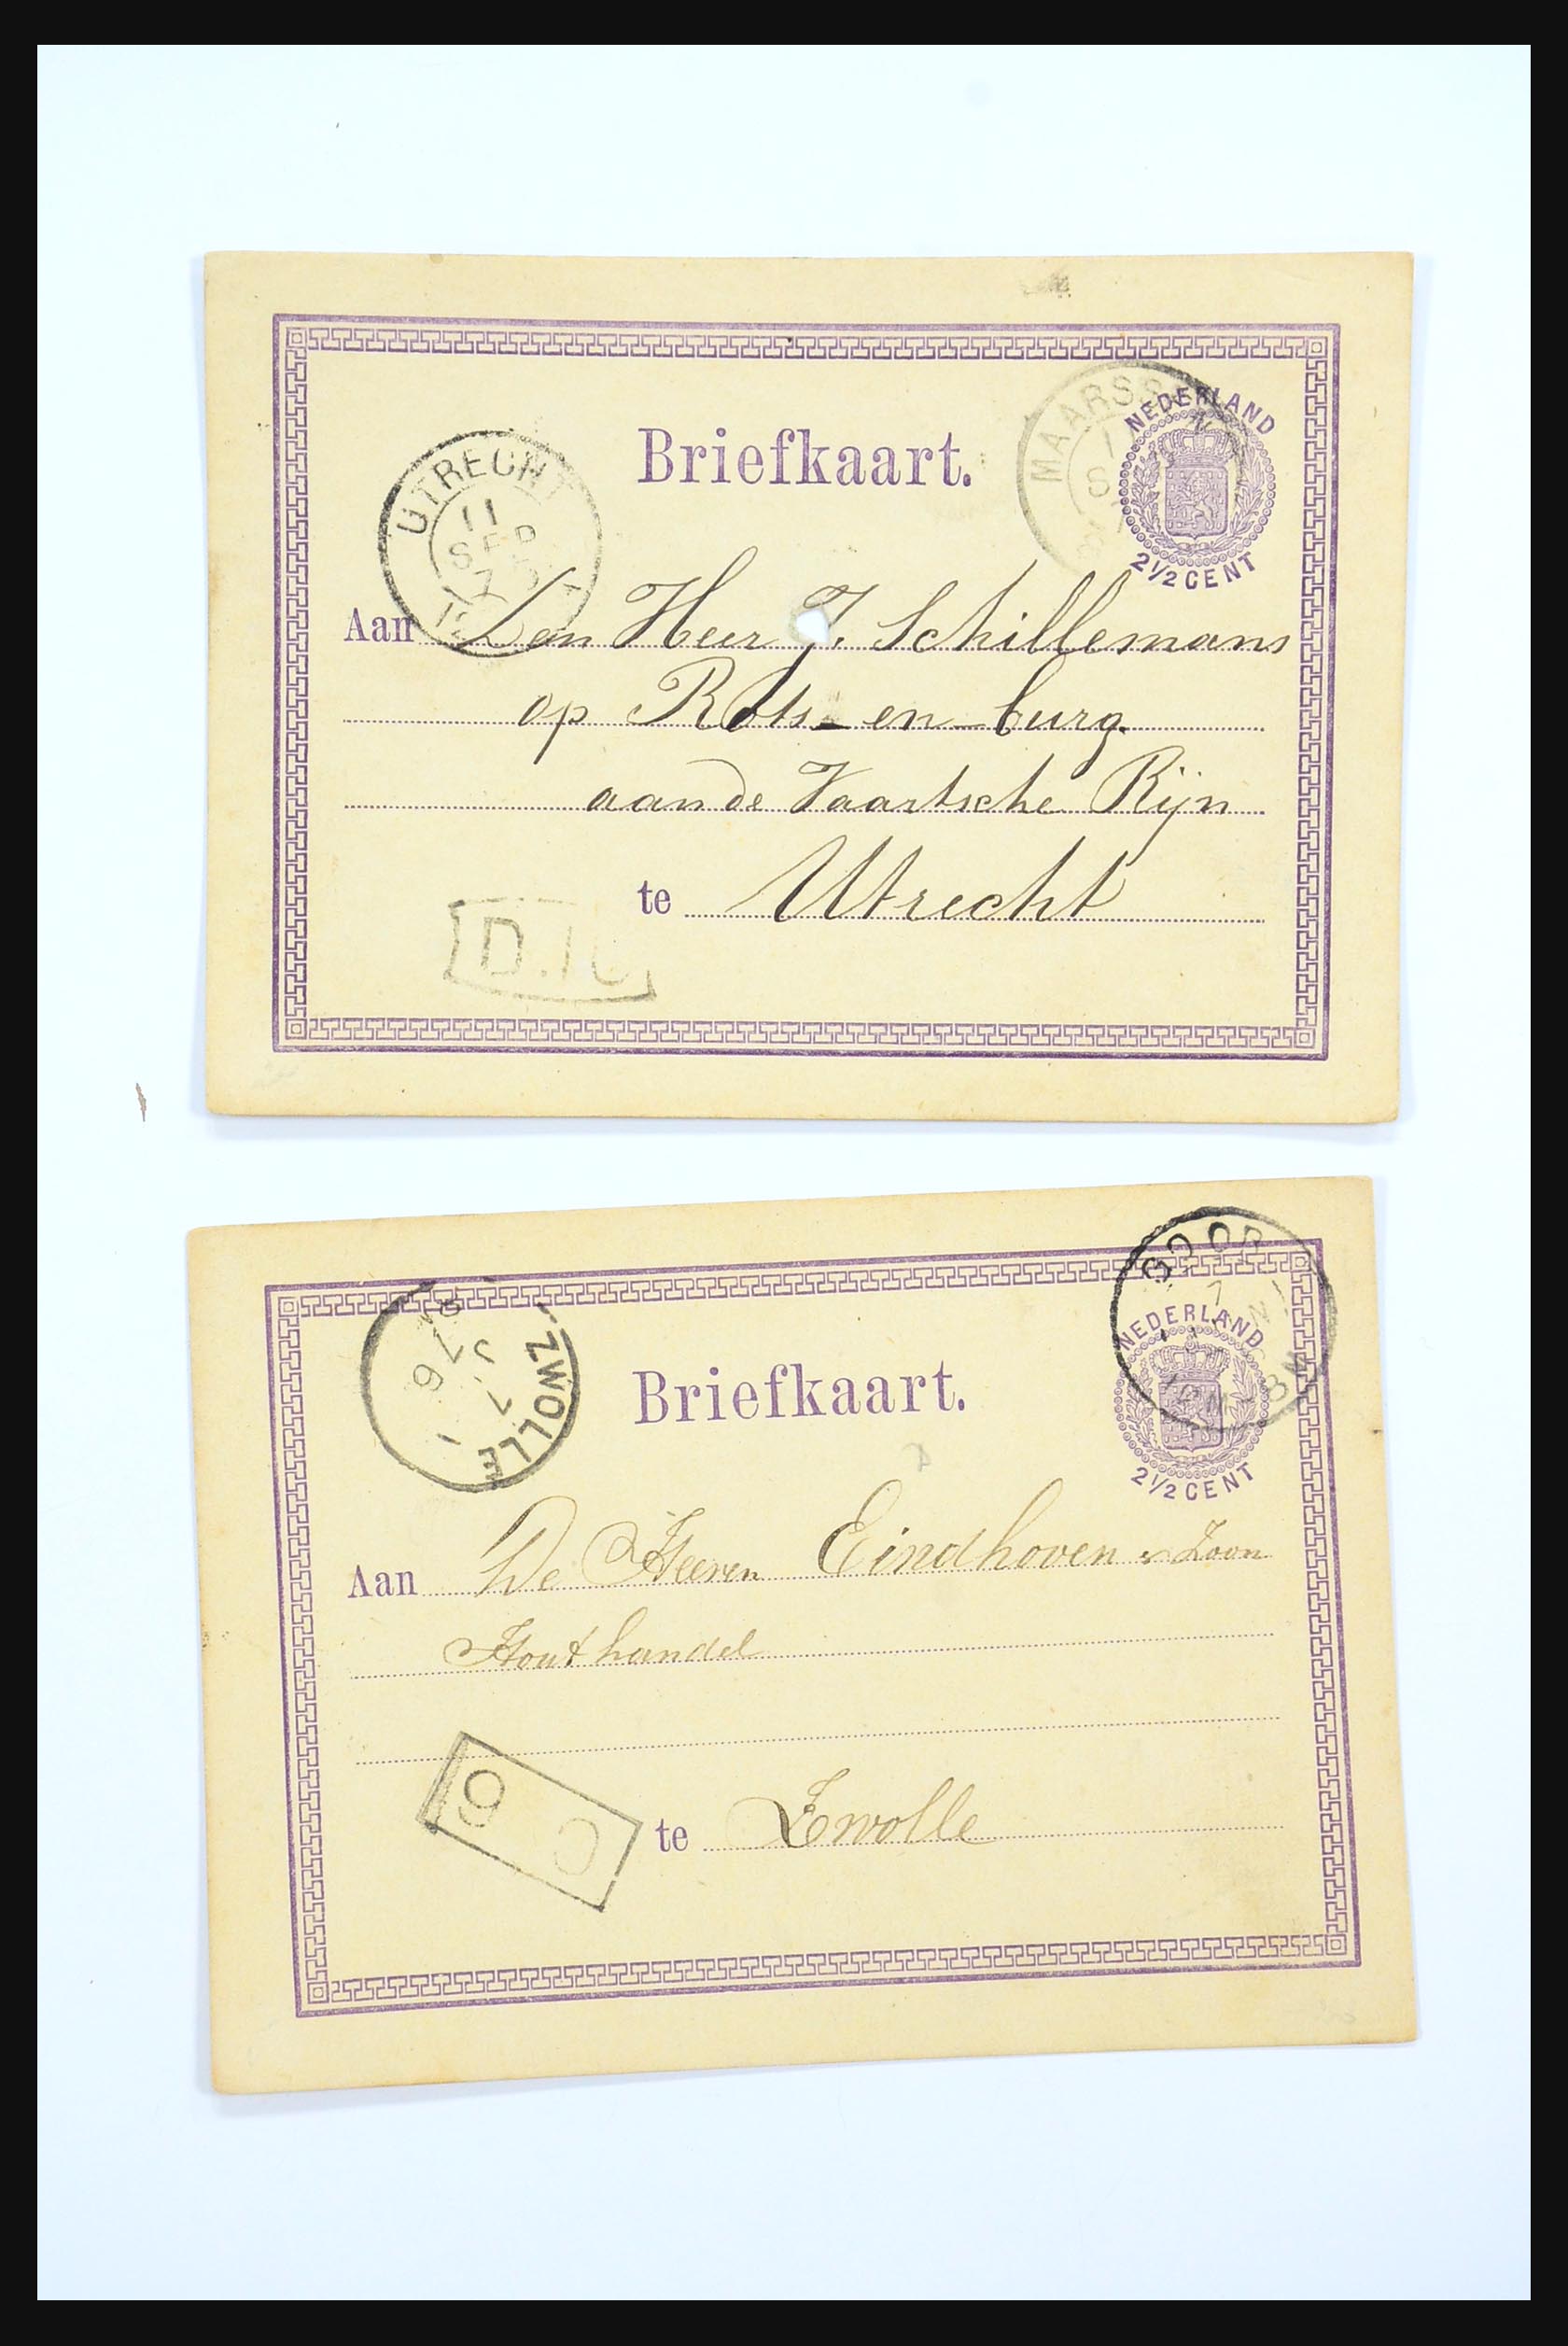 MAARSSEN
NEDERLAND
Briefkaart.
UTRECHT
11
SEP
2½ CENT
Aan Den Heer J. Schillemans
op Rots-en-burg.
aan de Vaartsche Rijn
te Utrecht
D.10
GOOR
NEDERLAND
ZWOLLE
76
Briefkaart.
2½ CENT
Aan De Heeren Eindhoven & Zoon
Houthandel
C 9
te Zwolle